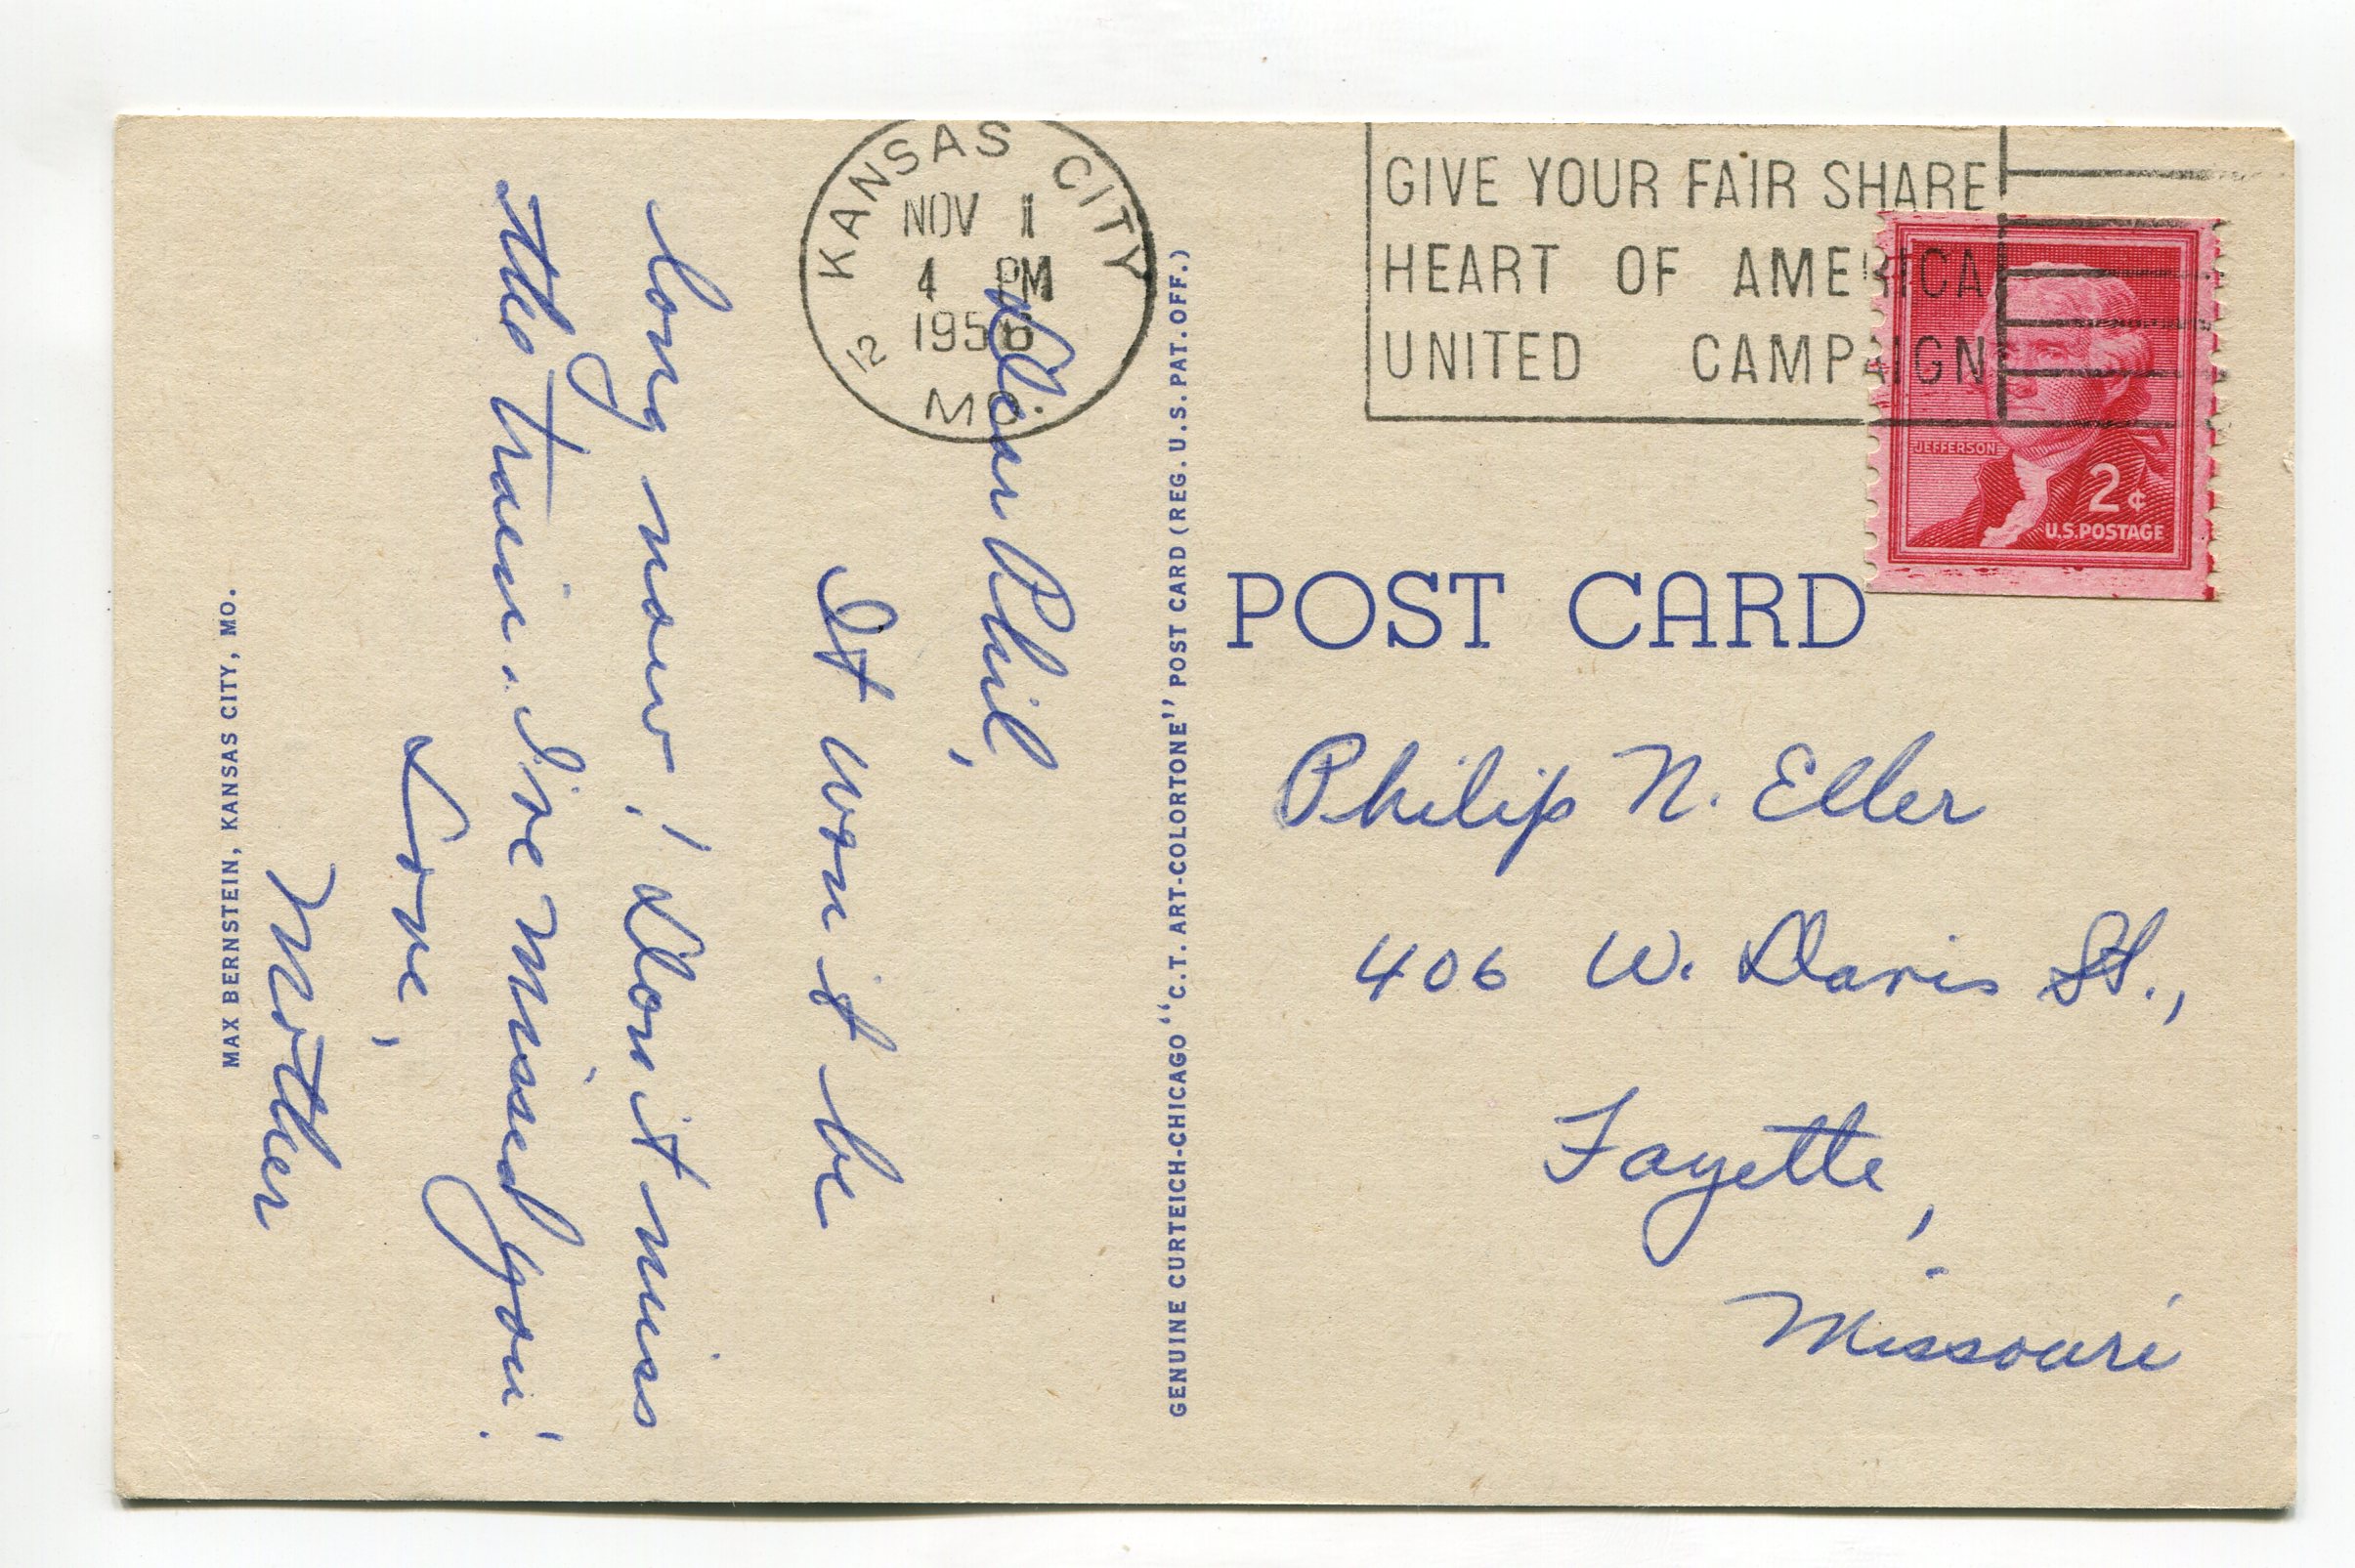 KANSAS CITY
NOV 1
4 PM
1956
12
MO.
GIVE YOUR FAIR SHARE
HEART OF AMERICA
UNITED CAMPAIGN
JEFFERSON
2¢
U.S. POSTAGE
POST CARD
Dear Phil,
It won't be
long now! Don't miss
the train. I've missed you!
Love,
Mother
MAX BERNSTEIN, KANSAS CITY, MO.
GENUINE CURTEICH-CHICAGO "C.T. ART-COLORTONE" POST CARD (REG. U. S. PAT. OFF.)
Philip N. Eller
406 W. Davis St.,
Fayette,
Missouri